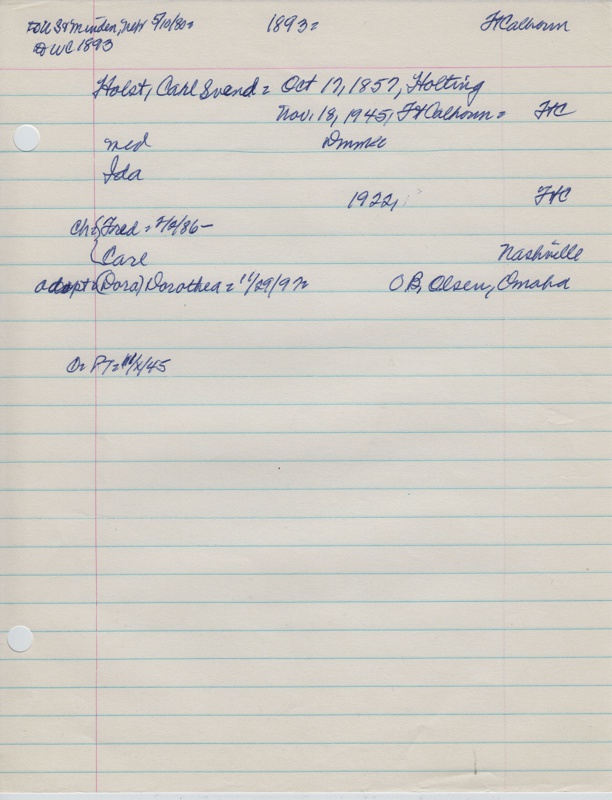 to U S & Minden, Nebr 5/10/80= 1893= Ft Calhoun
to WC 1893
Holst, Carl Svend = Oct 17, 1857, Holting
Nov. 18, 1945, Ft Calhoun = FtC
md Dnmk
Ida
1922, FtC
ch { Fred = 2/2/86-
{ Carl Nashville
adopt = (Dora) Dorothea = 11/29/97= O B, Olsen, Omaha
O= PT= 11/X/45